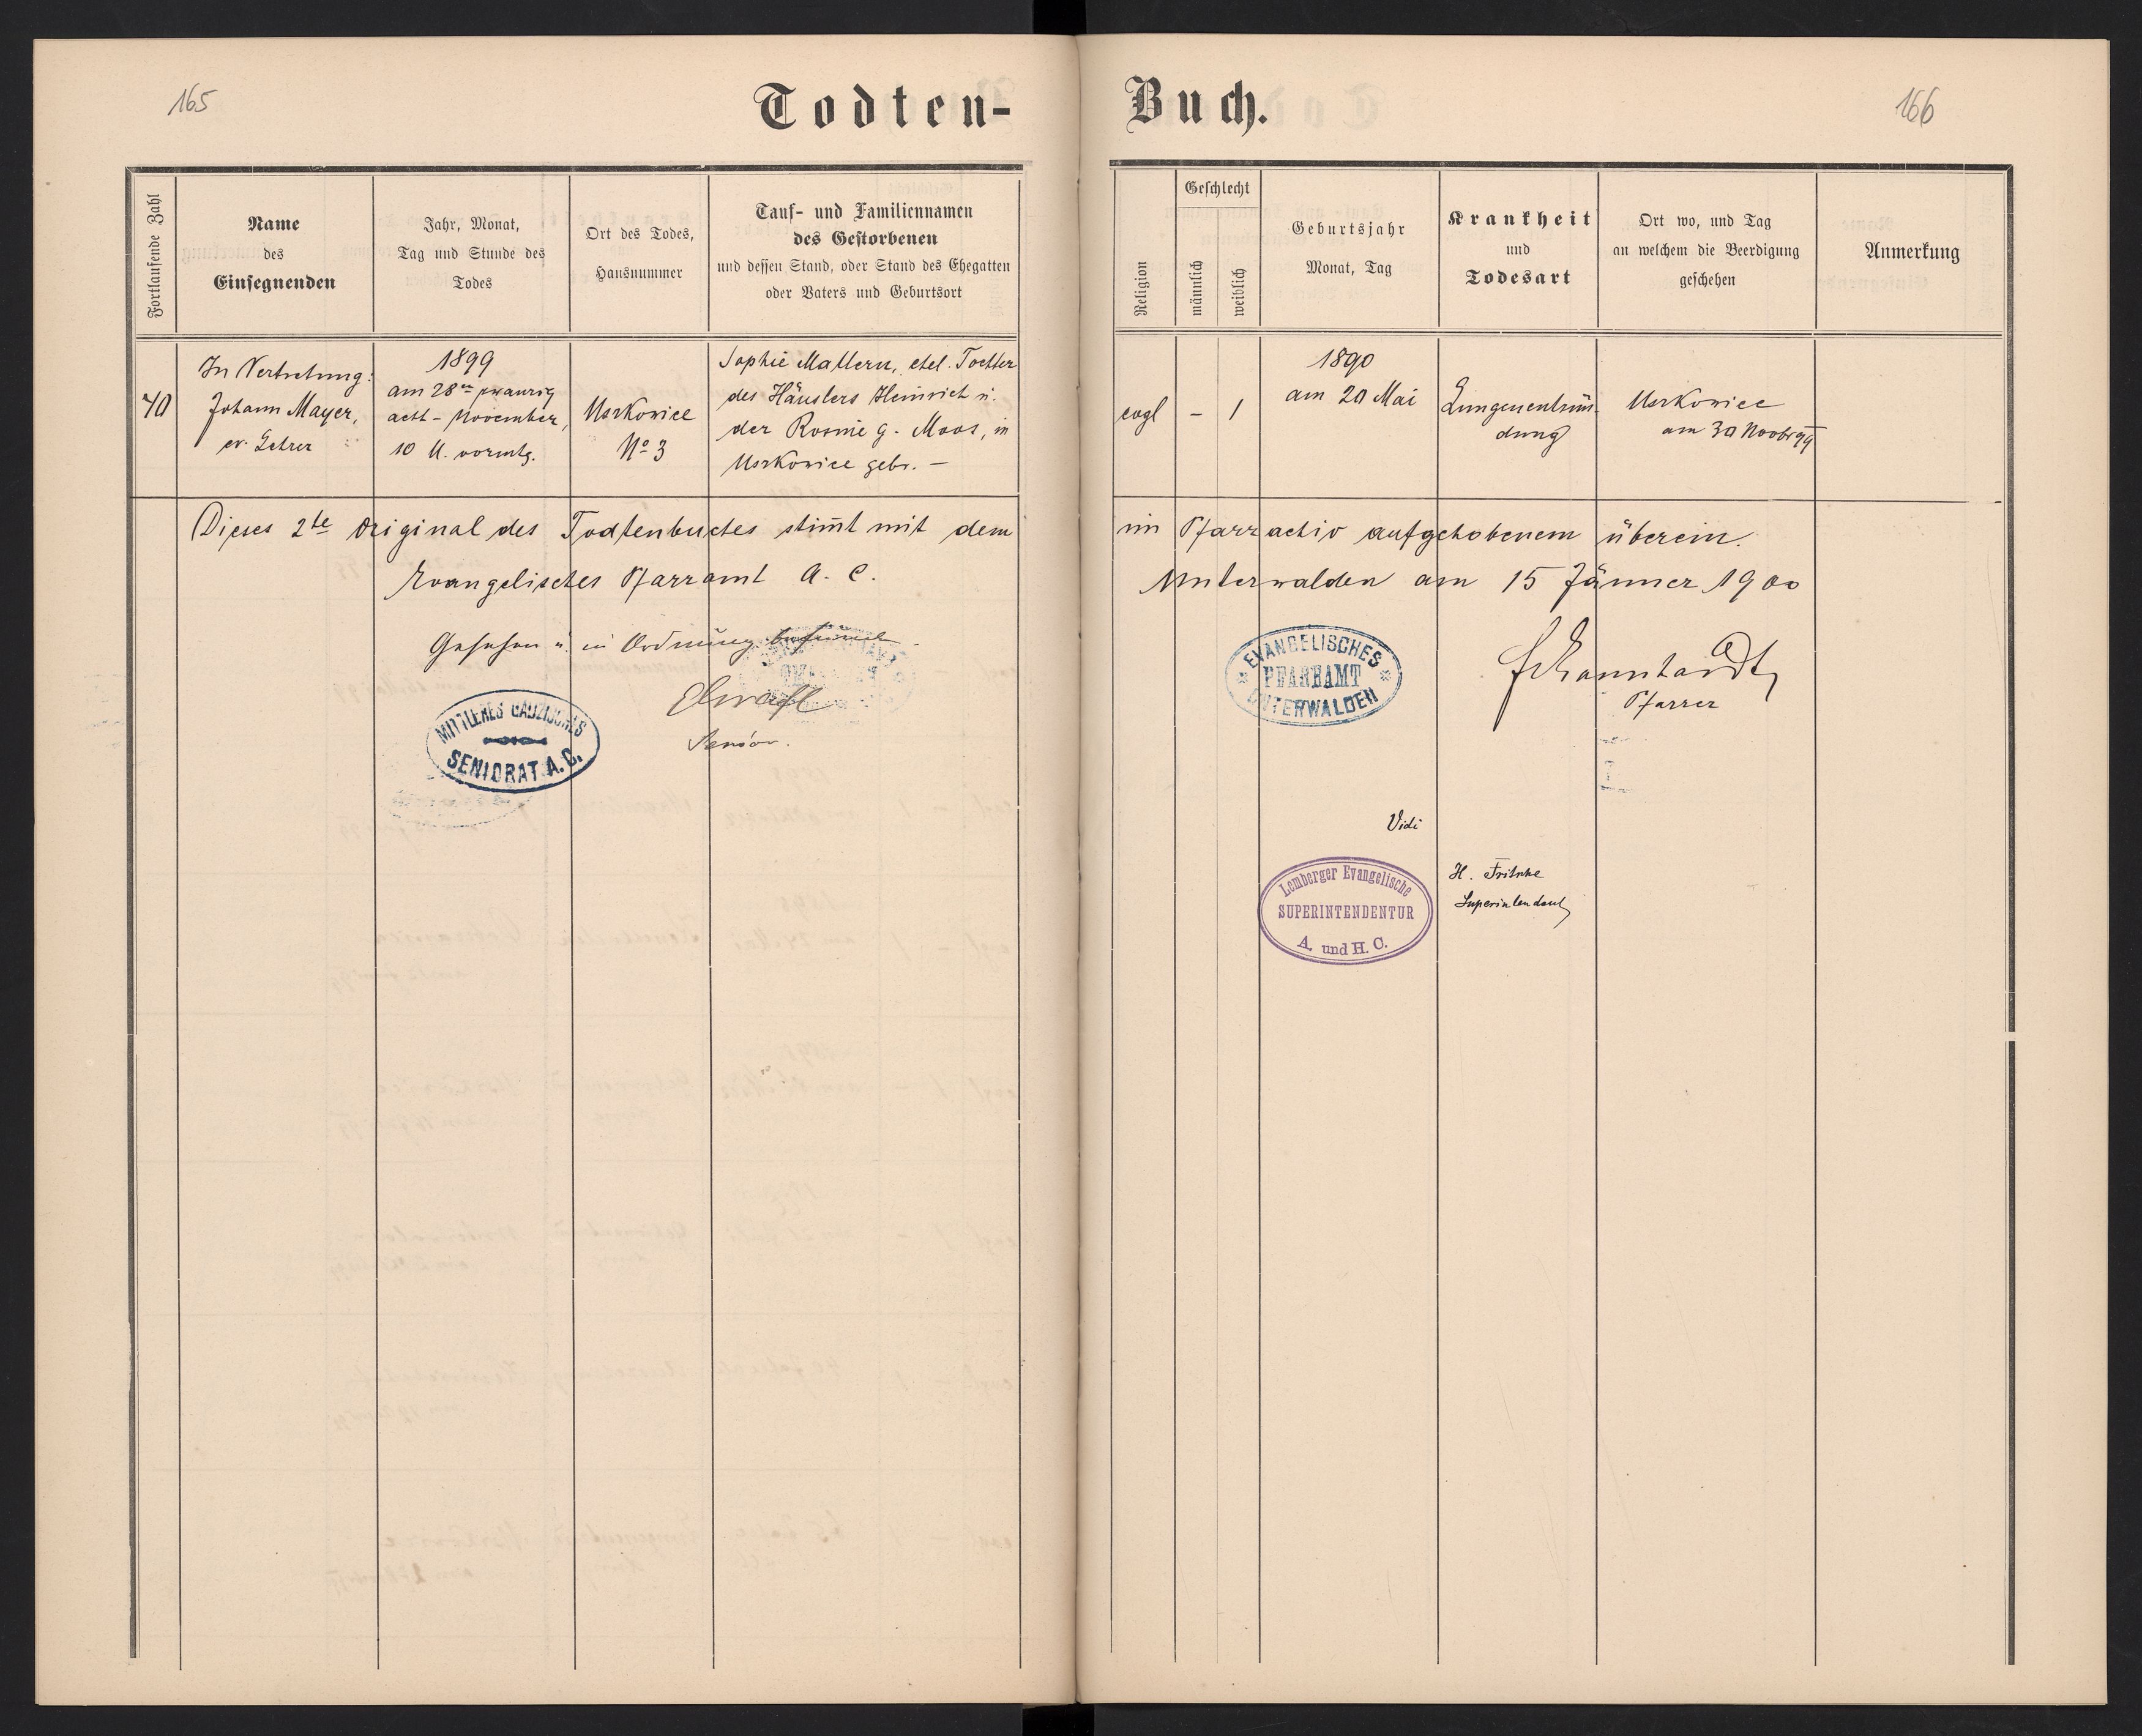 165
Todten-
Buch.
166
Fortlaufende Zahl
Name
des
Einsegnenden
Jahr, Monat,
Tag und Stunde des
Todes
Ort des Todes,
Hausnummer
Tauf- und Familiennamen
des Gestorbenen
und dessen Stand, oder Stand des Ehegatten
oder Vaters und Geburtsort
Religion
Geschlecht
männlich
weiblich
Geburtsjahr
Monat, Tag
Krankheit
und
Todesart
Ort wo, und Tag
an welchem die Beerdigung
geschehen
Anmerkung
70
In Vertretung:
Johann Mayer,
ev. Lehrer
1899
am 28ten zwanzig
acht - November,
10 U. vormtg.
Uszkowice
No 3
Sophie Mallern, ehel. Tochter
des Häuslers Heinrich u.
der Rosine g. Moos, in
Uszkowice gebr. –
evgl
–
1
1890
am 20 Mai
Lungenentzün-
dung
Uszkowice
am 30 Novbr 99
Dieses 2te Original des Todtenbuches stimt mit dem
im Pfarrachiv aufgehobenem überein.
Evangelisches Pfarramt A. C.
Unterwalden am 15 Jänner 1900
Gesehen u. in Ordnung befunden
Senior.
MITTLERES GALIZISCHES
SENIORAT A. C.
EVANGELISCHES
PFARRAMT
UNTERWALDEN
Pfarrer
Vidi
Lemberger Evangelische
SUPERINTENDENTUR
A. und H. C.
H. Fritsche
Superintendent